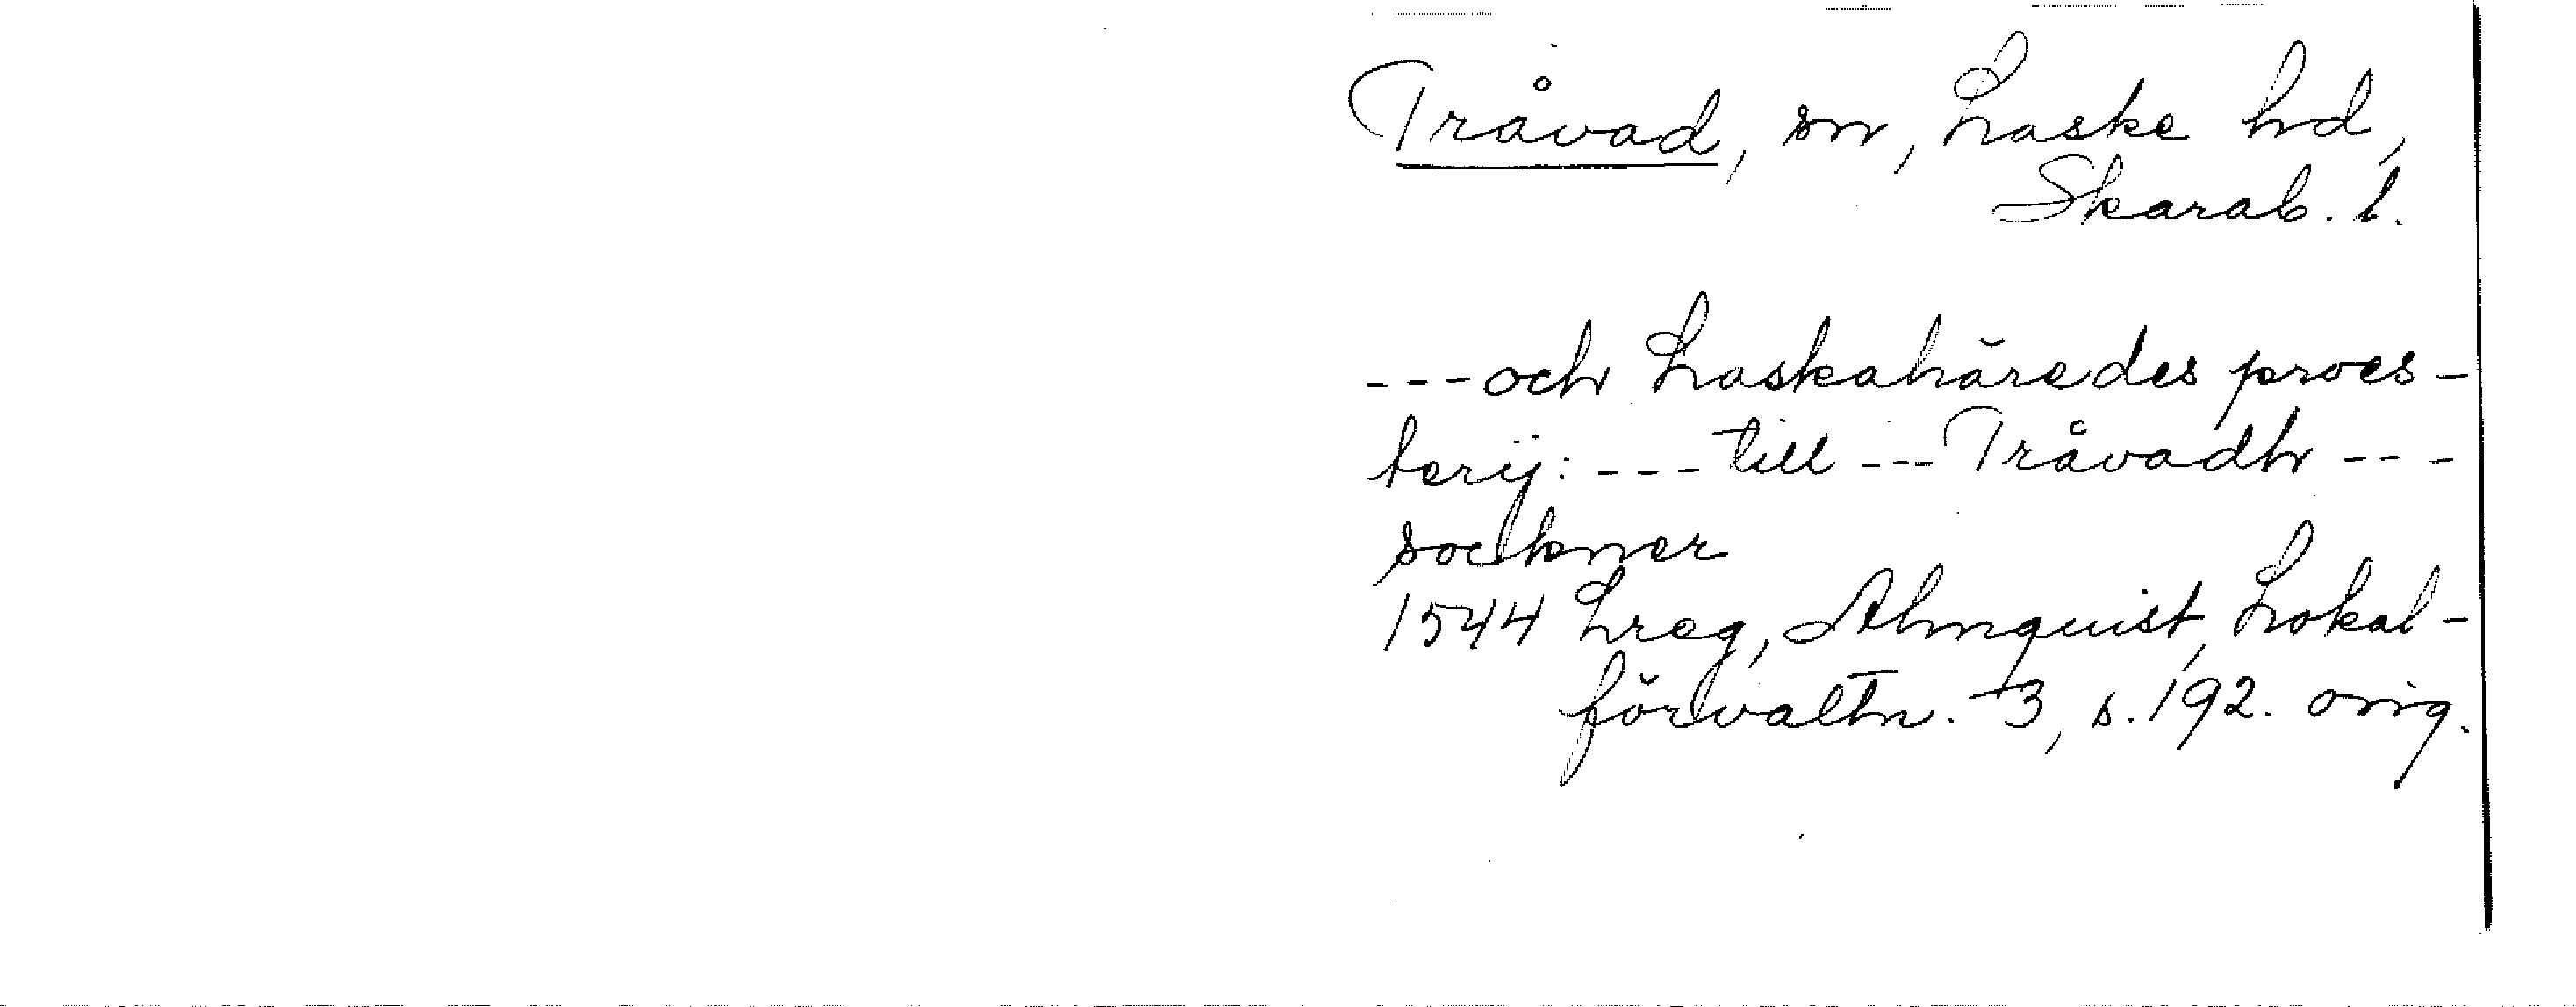 Tråvad, sn, Laske hd,
Skarab. l.
---och Laskahäredes proes-
terij: --- till --- Tråvadh ---
sockner
1544 Lreg, Almquist, Lokal-
förvaltn. 3, s. 192. orig.